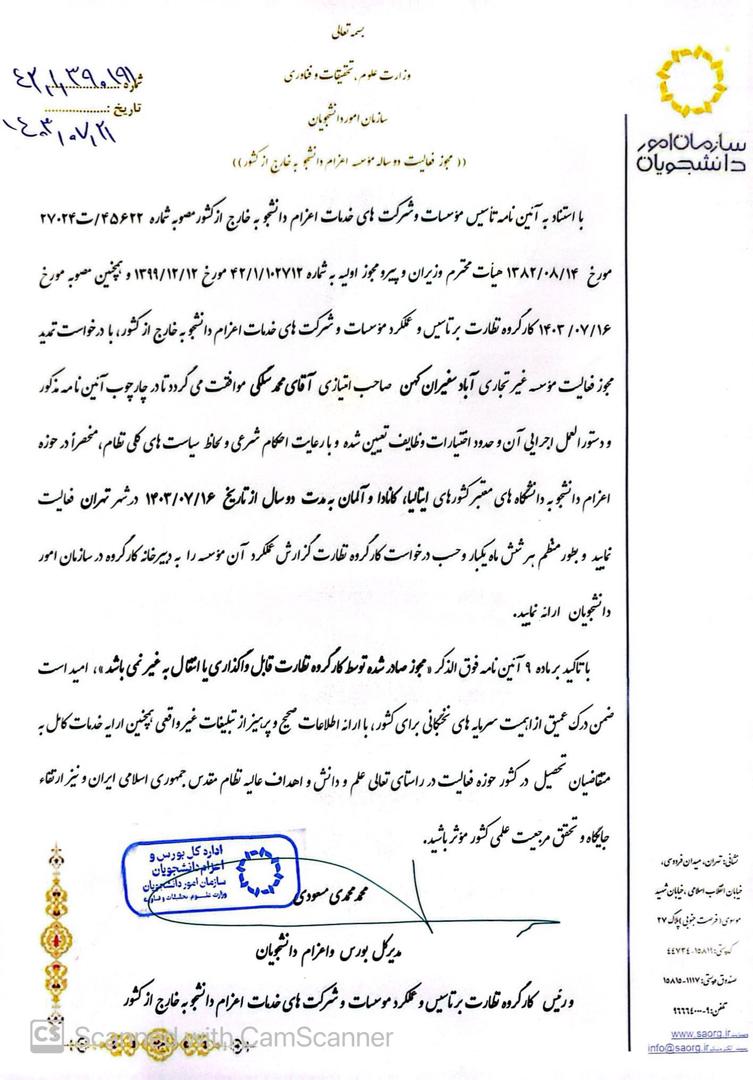 بسمه تعالی
وزارت علوم، تحقیقات و فناوری
سازمان امور دانشجویان
(( مجوز فعالیت دو ساله مؤسسه اعزام دانشجو به خارج از کشور ))
شماره
تاریخ :
۱۴۰۳/۰۷/۲۱
سازمان امور
دانشجویان
با استناد به آئین نامه تأسیس مؤسسات و شرکت های خدمات اعزام دانشجو به خارج از کشور مصوبه شماره ۴۵۶۲۲/ت۲۷۰۲۴
مورخ ۱۳۸۲/۰۸/۱۴ هیأت محترم وزیران و پیرو مجوز اولیه به شماره ۴۲/۱/۱۰۲۷۱۲ مورخ ۱۳۹۹/۱۲/۱۲ و همچنین مصوبه مورخ
۱۴۰۳/۰۷/۱۶ کارگروه نظارت بر تاسیس و عملکرد مؤسسات و شرکت های خدمات اعزام دانشجو به خارج از کشور، با درخواست تمدید
مجوز فعالیت مؤسسه غیر تجاری آباد سفیران کهن صاحب امتیازی آقای محمد سلگی موافقت می گردد تا در چارچوب آئین نامه مذکور
و دستورالعمل اجرایی آن و حدود اختیارات وظایف تعیین شده و با رعایت احکام شرعی و لحاظ سیاست های کلی نظام، منحصراً در حوزه
اعزام دانشجو به دانشگاه های معتبر کشورهای ایتالیا، کانادا و آلمان به مدت دو سال از تاریخ ۱۴۰۳/۰۷/۱۶ در شهر تهران فعالیت
نماید و بطور منظم هر شش ماه یکبار و حسب درخواست کارگروه نظارت گزارش عملکرد آن مؤسسه را به دبیرخانه کارگروه در سازمان امور
دانشجویان ارائه نمایید.
با تاکید بر ماده ۹ آئین نامه فوق الذکر «مجوز صادر شده توسط کارگروه نظارت قابل واگذاری یا انتقال به غیر نمی باشد»، امید است
ضمن درک عمیق از اهمیت سرمایه های نخبگانی برای کشور، با ارائه اطلاعات صحیح و پرهیز از تبلیغات غیر واقعی همچنین ارایه خدمات کامل به
متقاضیان تحصیل در کشور حوزه فعالیت در راستای تعالی علم و دانش و اهداف عالیه نظام مقدس جمهوری اسلامی ایران و نیز ارتقاء
جایگاه و تحقق مرجعیت علمی کشور مؤثر باشید.
اداره کل بورس و
اعزام دانشجویان
سازمان امور دانشجویان
وزارت علوم، تحقیقات و فناوری
محمد محمدی مسعودی
مدیرکل بورس و اعزام دانشجویان
و رئیس کارگروه نظارت بر تاسیس و عملکرد موسسات و شرکت های خدمات اعزام دانشجو به خارج از کشور
نشانی: تهران، میدان فردوسی،
خیابان انقلاب اسلامی، خیابان شهید
موسوی (فرصت جنوبی) پلاک ۲۷
کدپستی: ۱۵۸۱۹-۴۴۷۳۴
صندوق پستی: ۱۱۱۷-۱۵۸۱۵
تلفن: ۹-۹۶۶۶۴۰۰۰
www.saorg.ir
info@saorg.ir
CS Scanned with CamScanner